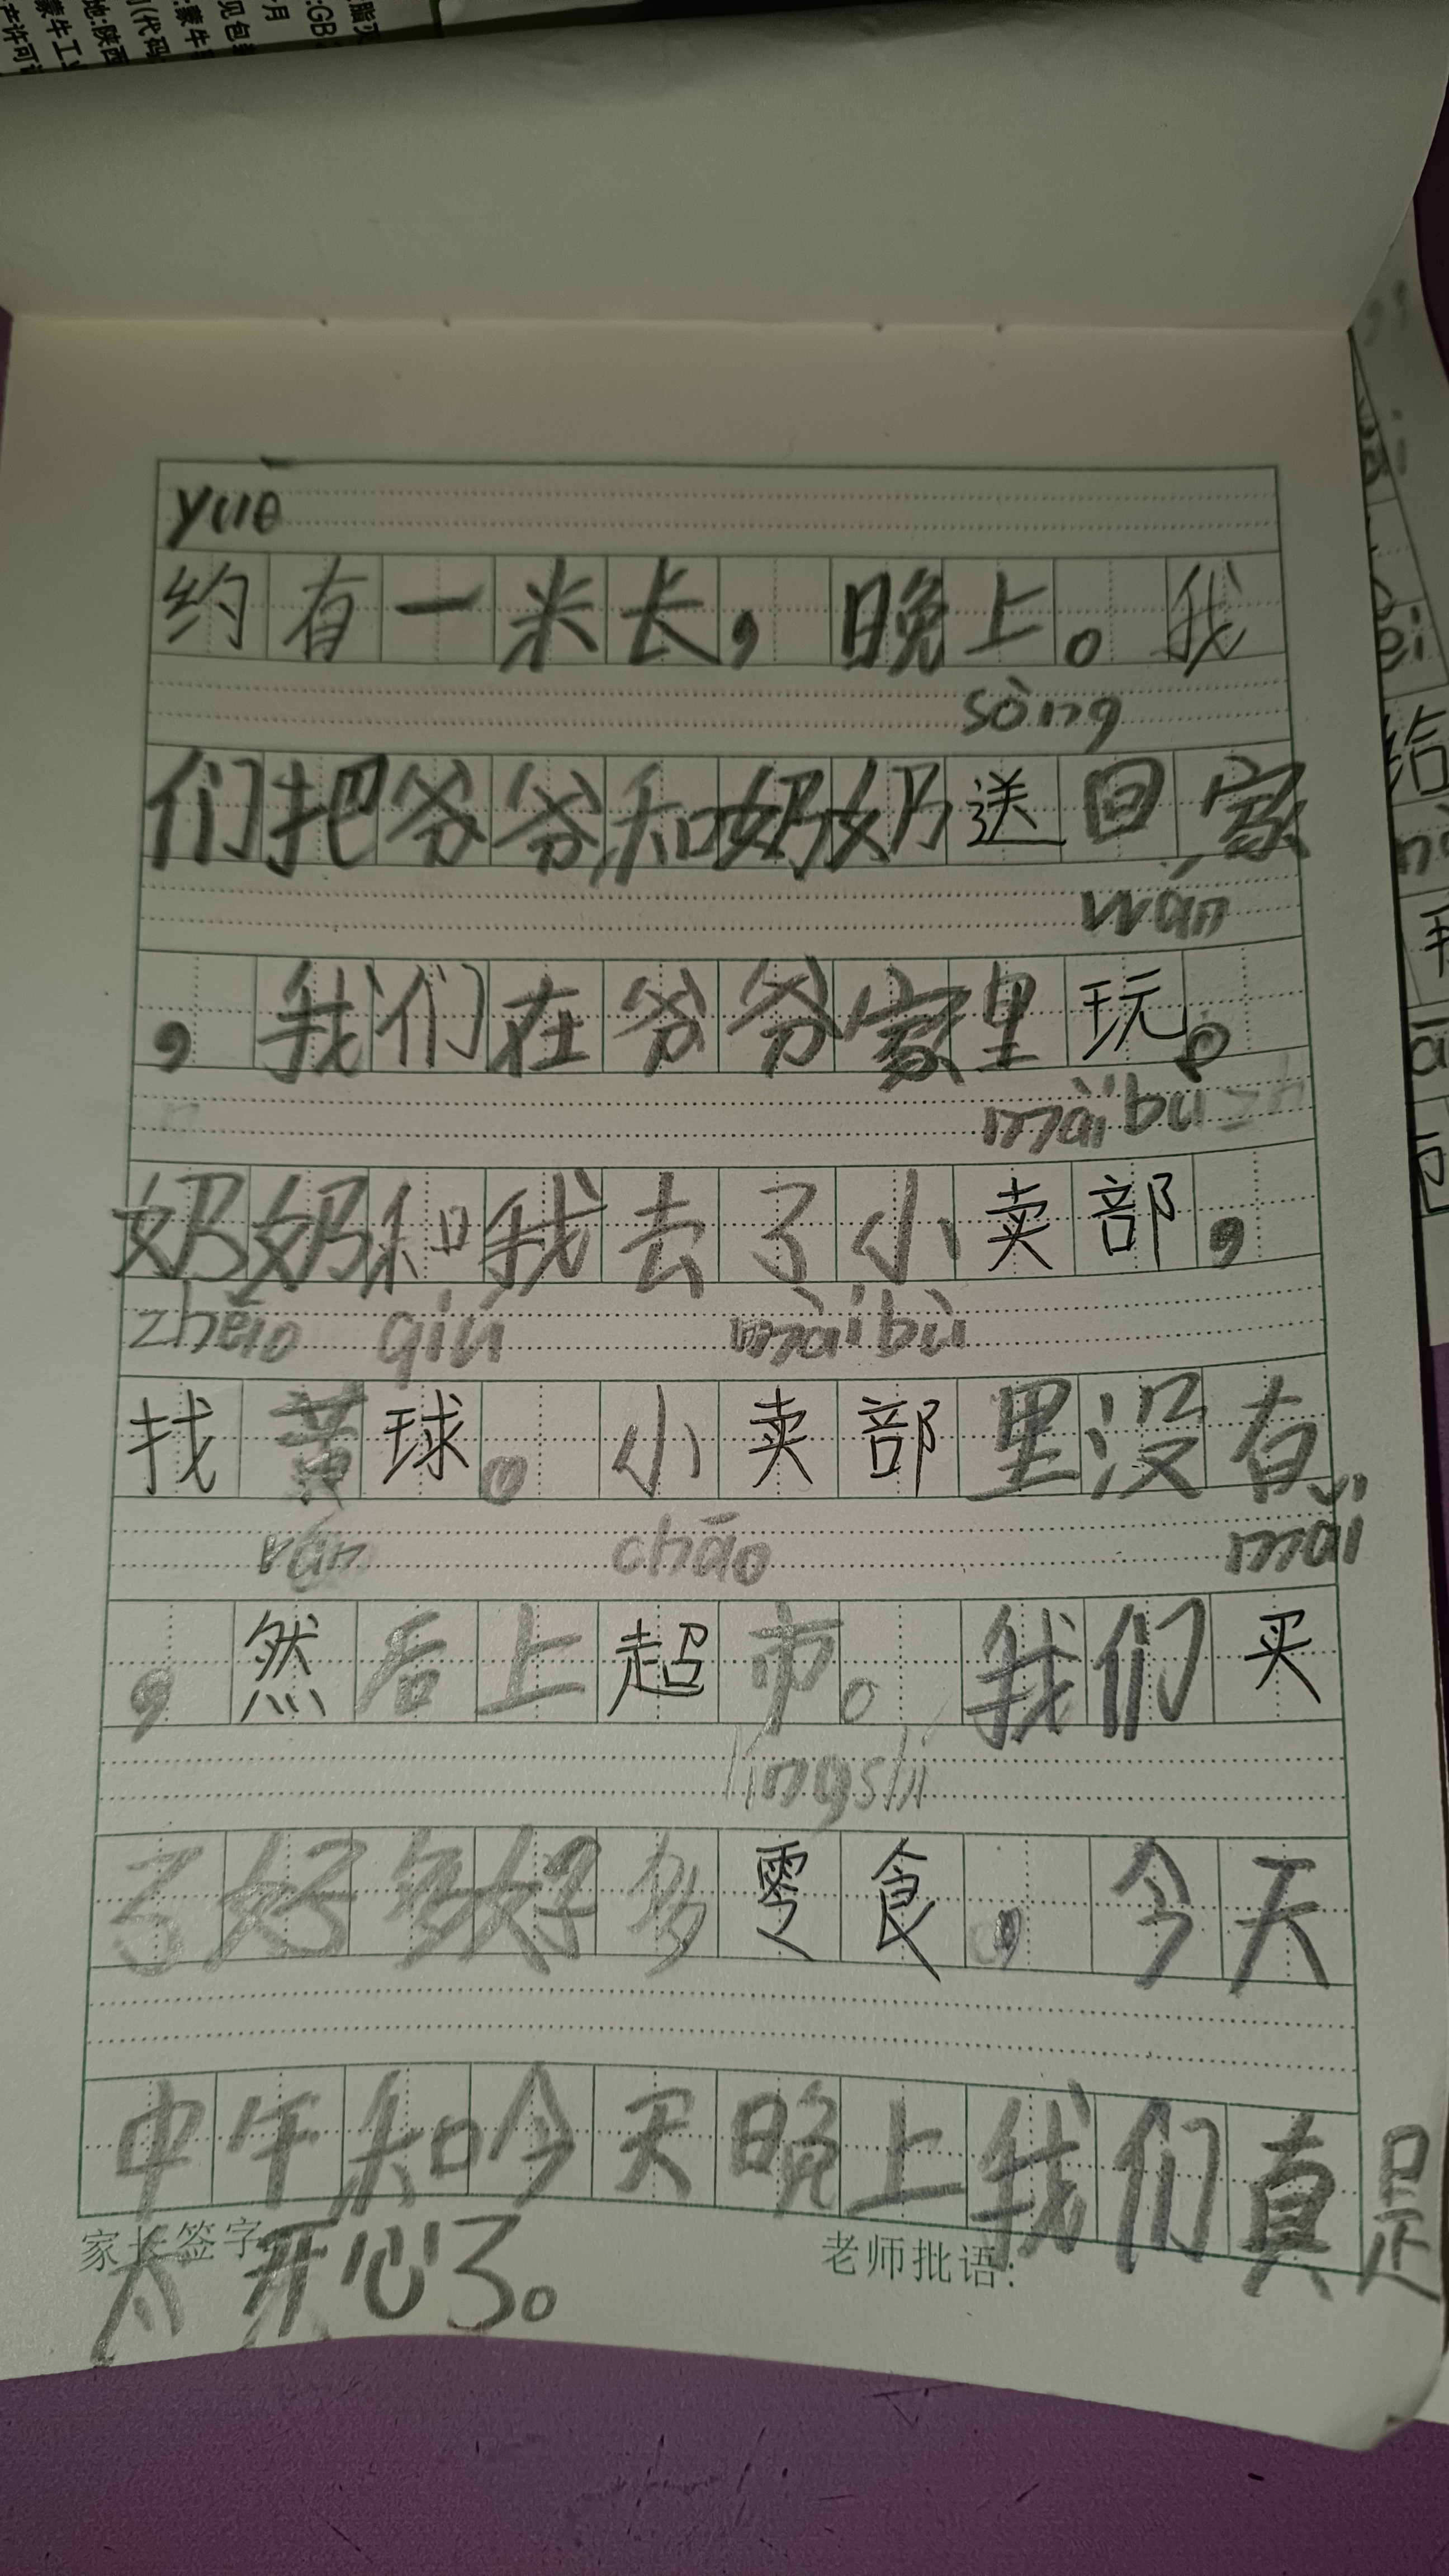 yue
约有一米长，晚上。我
sòng
们把爷爷和奶奶送回家
wán
，我们在爷爷家里玩。
màibù
奶奶和我去了小卖部，
zhǎo qiú màibù
找黄球。小卖部里没有
rán chāo mǎi
，然后上超市。我们买
língshí
了好多好多零食。今天
中午和今天晚上我们真是
太开心了。
家长签字
老师批语：